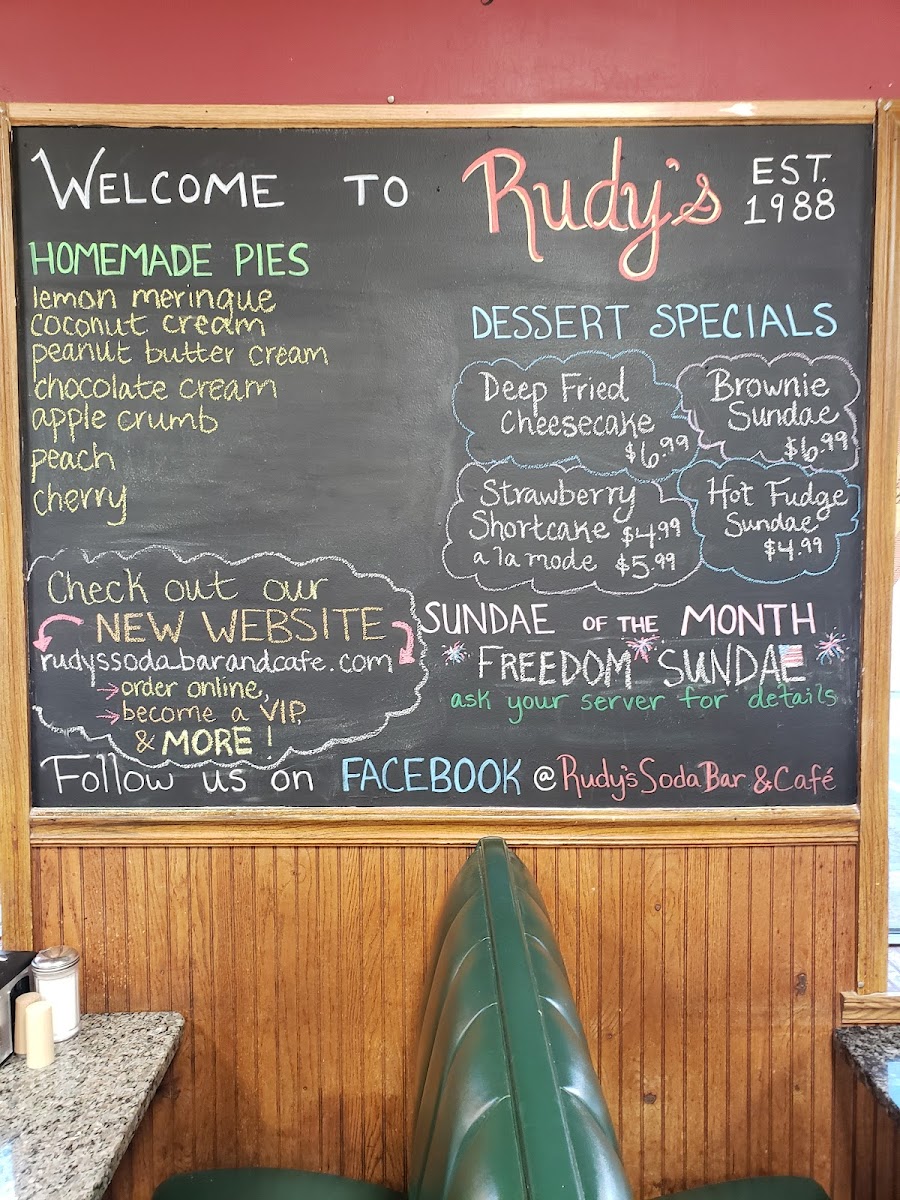 WELCOME TO Rudy's EST. 1988
HOMEMADE PIES
lemon meringue
coconut cream
peanut butter cream
chocolate cream
apple crumb
peach
cherry
DESSERT SPECIALS
Deep Fried
Cheesecake
$6.99
Brownie
Sundae
$6.99
Strawberry
Shortcake $4.99
a la mode $5.99
Hot Fudge
Sundae
$4.99
Check out our
NEW WEBSITE
rudyssodabarandcafe.com
→order online,
→become a VIP,
& MORE!
SUNDAE OF THE MONTH
FREEDOM SUNDAE
ask your server for details
Follow us on FACEBOOK @Rudy'sSodaBar &Café